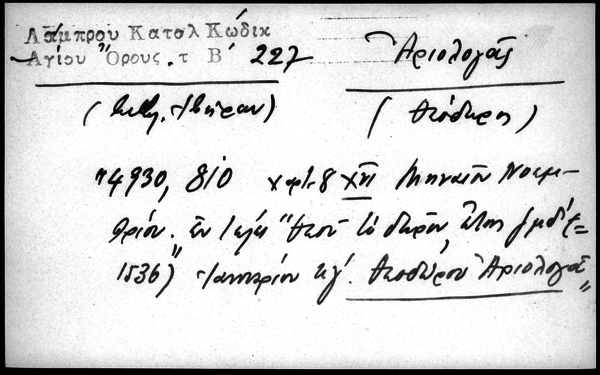 Λάμπρου Κατολ Κώδικ
Αγίου Όρους. τ Β΄ 227
Ἀριολογᾶς
(Ἰβήρων)
(Θεόδωρος)
4930, 810 χφ 8 XVI Μηναῖον Νοεμ-
βρίου. Ἐν τέλει "Θεοῦ τὸ δῶρον, ἔτος ζμδ΄ (=
1536) Ἰαννουαρίου κγ΄. Θεοδώρου Ἀριολογᾶ"